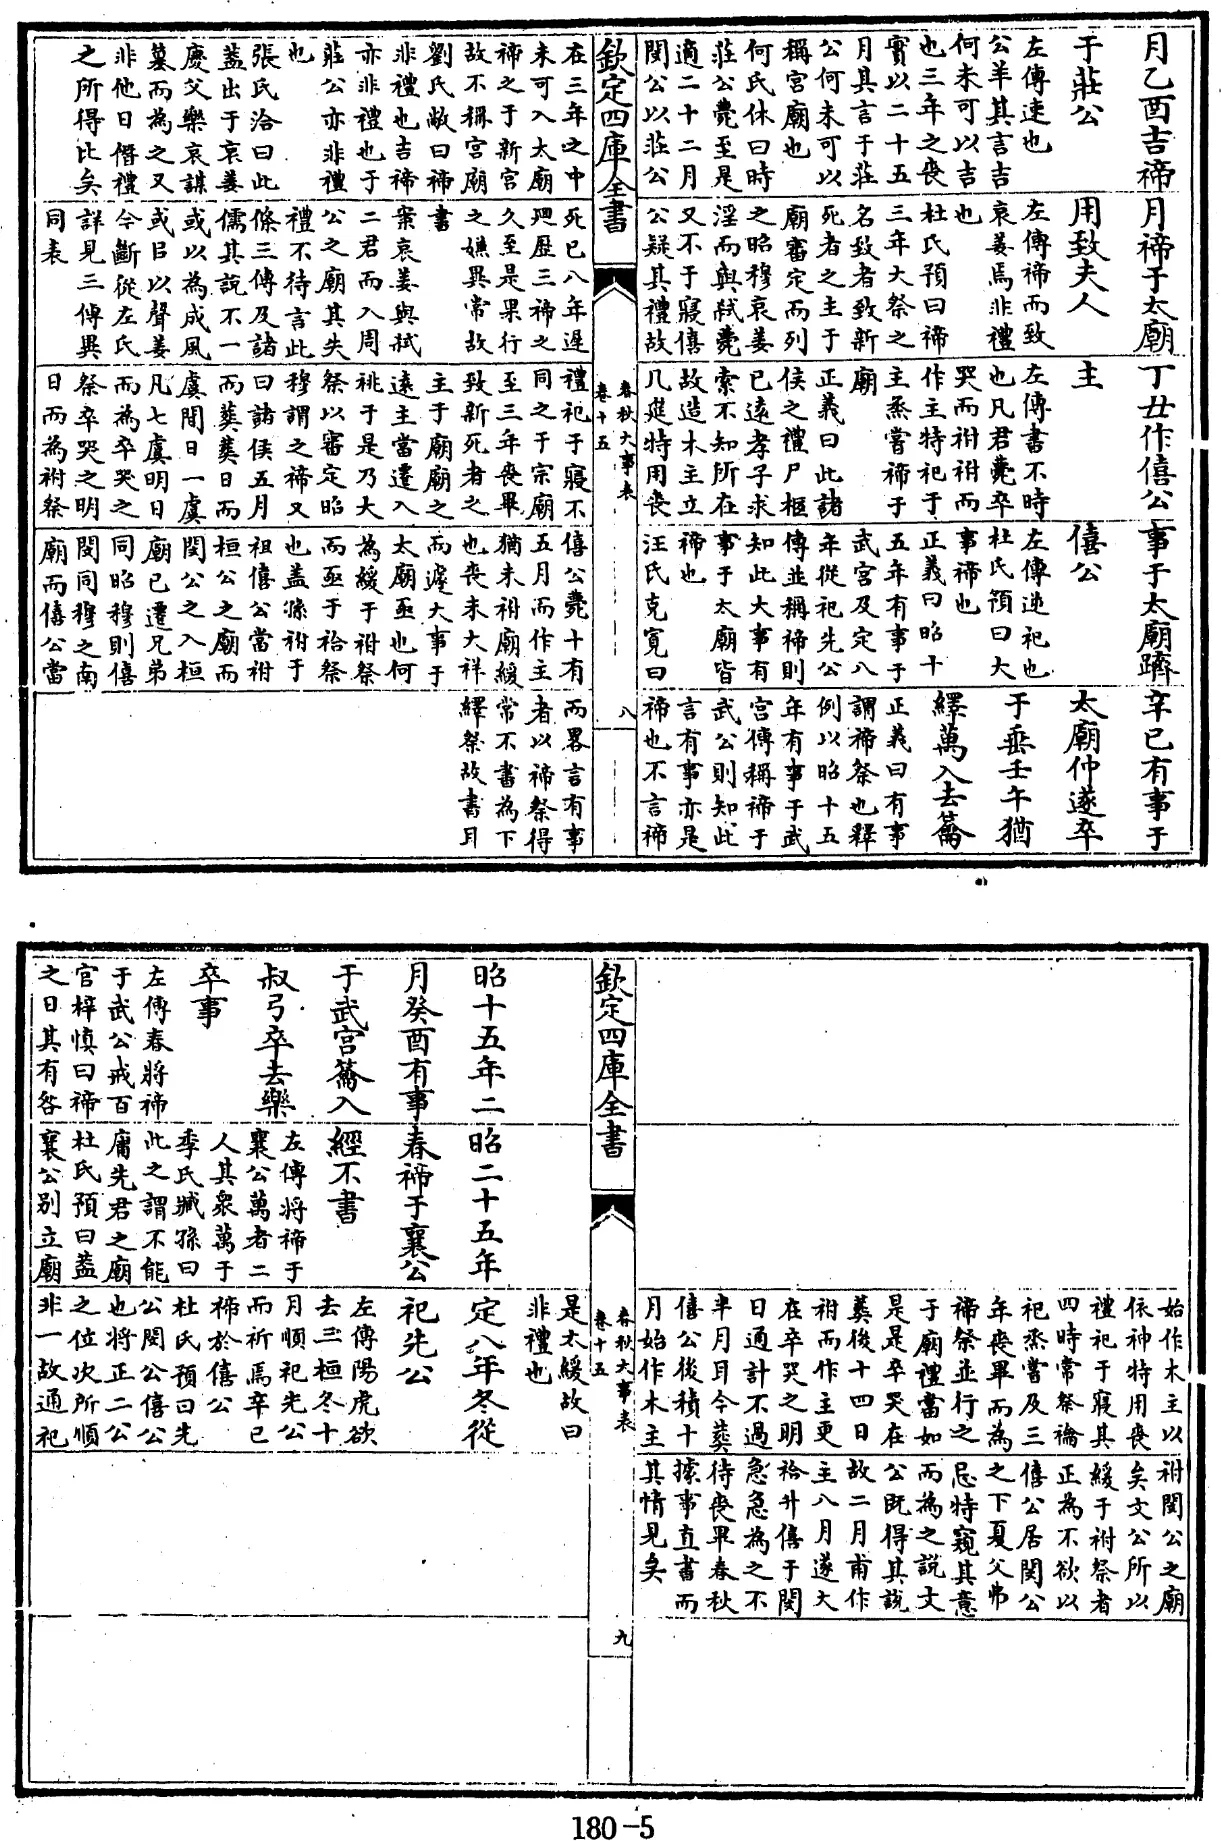 月乙酉吉禘
于莊公
左傳速也
公羊其言吉
何未可以吉
也三年之喪
實以二十五
月其言于莊
公何未可以
稱宫廟也
何氏休曰時
莊公薨至是
適二十二月
閔公以莊公
月禘于太廟
用致夫人
左傳禘而致
哀姜焉非禮
也
杜氏預曰禘
三年大祭之
名致者致新
死者之主于
廟審定而列
之昭穆哀姜
淫而與弑薨
又不于寢僖
公疑其禮故
丁丑作僖公
主
左傳書不時
也凡君薨卒
哭而祔祔而
作主特祀于
主烝嘗禘于
廟
正義曰此諸
侯之禮尸柩
已遠孝子求
索不知所在
故造木主立
几筵特用喪
事于太廟躋
僖公
左傳逆祀也
杜氏預曰大
事禘也
正義曰昭十
五年有事于
武宫及定八
年從祀先公
傳並稱禘則
知此大事有
事于太廟皆
禘也
汪氏克寛曰
辛巳有事于
太廟仲遂卒
于垂壬午猶
繹萬入去籥
正義曰有事
謂禘祭也釋
例以昭十五
年有事于武
宫傳稱禘于
武公則知此
言有事亦是
禘也不言禘
欽定四庫全書
春秋大事表
卷十五
八
在三年之中
未可入太廟
禘之于新宫
故不稱宫廟
劉氏敞曰禘
非禮也吉禘
亦非禮也于
莊公亦非禮
也
張氏洽曰此
蓋出于哀姜
慶父樂哀謀
墓而為之又
非他日僭禮
之所得比矣
死已八年遲
廻歷三禘之
久至是果行
之嫌異常故
書
案哀姜與弑
二君而入周
公之廟其失
禮不待言此
條三傳及諸
儒其說不一
或以為成風
或曰以聲姜
今斷從左氏
詳見三傳異
同表
禮祀于寢不
同之于宗廟
至三年喪畢
致新死者之
主于廟廟之
遠主當遷入
祧于是乃大
祭以審定昭
穆謂之禘又
曰諸侯五月
而葬葬日而
虞間日一虞
凡七虞明日
而為卒哭之
祭卒哭之明
日而為祔祭
僖公薨十有
五月而作主
猶未祔廟緩
也喪未大祥
而遽大事于
太廟亟也何
為緩于祔祭
而亟于祫祭
也蓋緣祔于
祖僖公當祔
桓公之廟而
閔公之入桓
廟已遷兄弟
同昭穆則僖
閔同穆之南
廟而僖公當
而畧言有事
者以禘祭得
常不書為下
繹祭故書耳
始作木主以
依神特用喪
禮祀于寢其
四時常祭禴
祀烝嘗及三
年喪畢而為
禘祭並行之
于廟禮當如
是是卒哭在
葬後十四日
祔而作主更
在卒哭之明
日通計不過
半月耳今葬
僖公後積十
月始作木主
祔閔公之廟
矣文公所以
緩于祔祭者
正為不欲以
僖公居閔公
之下夏父弗
忌特窺其意
而為之說文
公既得其說
故二月甫作
主八月遂大
祫升僖于閔
急急為之不
待喪畢春秋
據事直書而
其情見矣
欽定四庫全書
春秋大事表
卷十五
九
昭十五年二
月癸酉有事
于武宫籥入
叔弓卒去樂
卒事
左傳春將禘
于武公戒百
官梓慎曰禘
之日其有咎
昭二十五年
春禘于襄公
經不書
左傳將禘于
襄公萬者二
人其衆萬于
季氏臧孫曰
此之謂不能
庸先君之廟
杜氏預曰蓋
襄公别立廟
是太緩故曰
非禮也
定八年冬從
祀先公
左傳陽虎欲
去三桓冬十
月順祀先公
而祈焉辛巳
禘於僖公
杜氏預曰先
公閔公僖公
也將正二公
之位次所順
非一故通祀
180-5